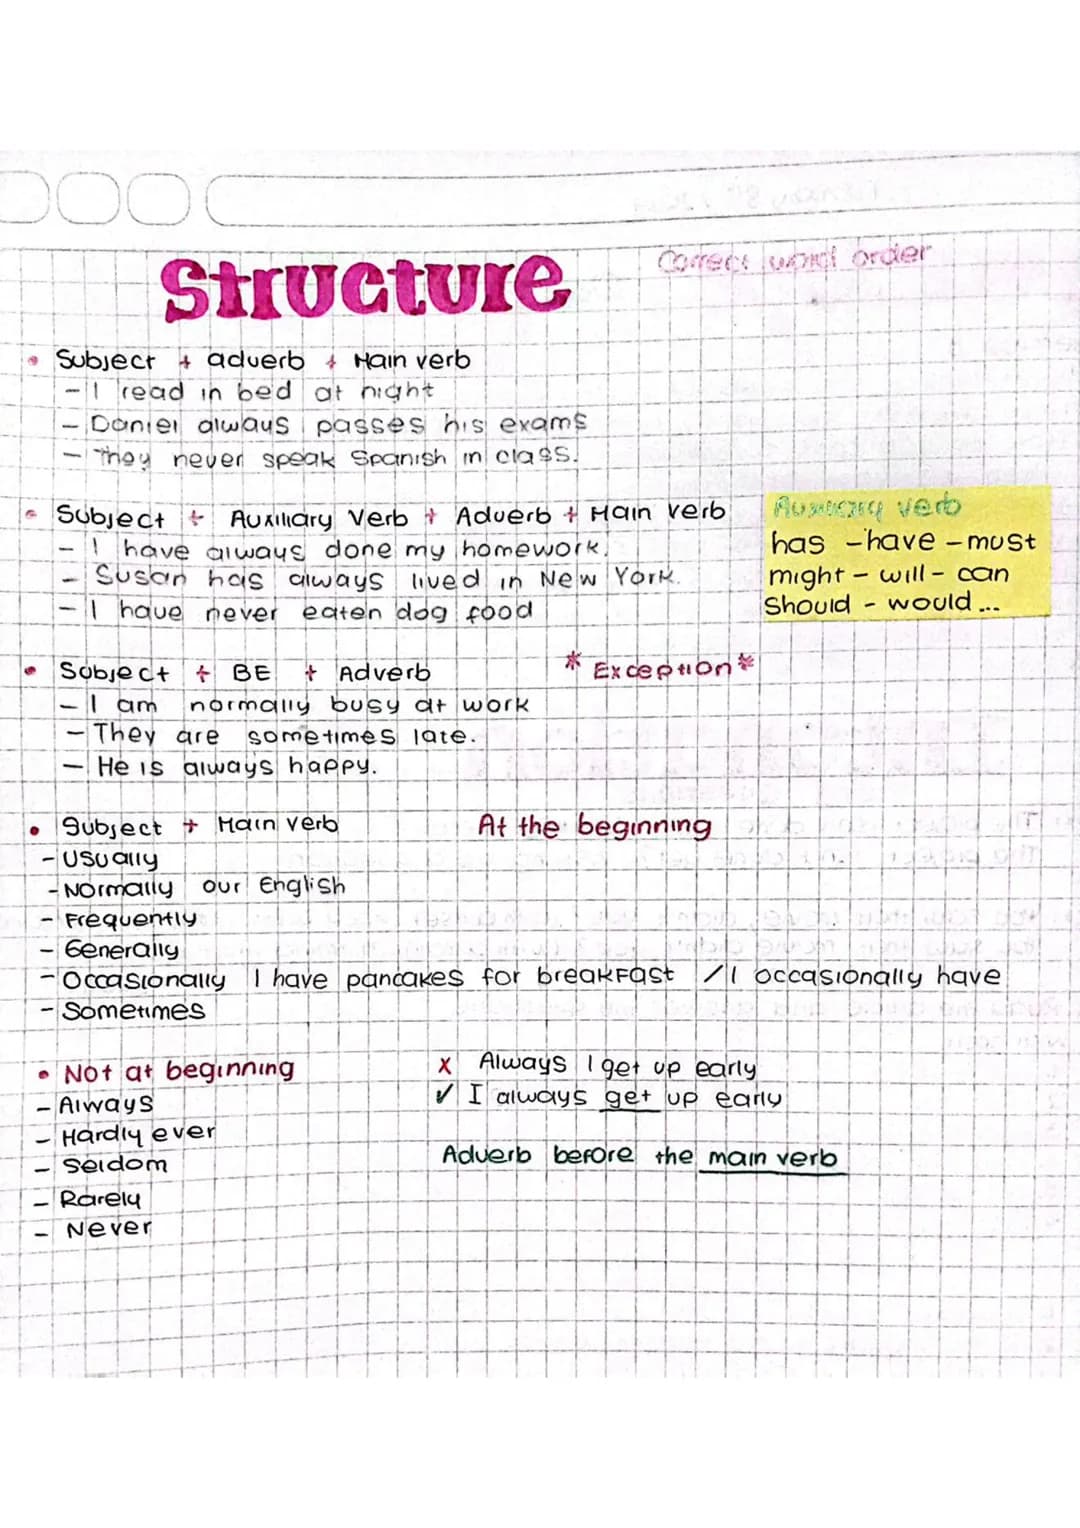 Structure
Correct word order
• Subject + adverb + Main verb
- I read in bed at night
- Daniel always passes his exams
- They never speak Spanish in class.
• Subject + Auxiliary Verb + Adverb + Main verb
- I have always done my homework.
- Susan has always lived in New York.
- I have never eaten dog food
Auxiliary verb
has - have - must
might - will - can
Should - would...
• Subject + BE + Adverb
* Exception *
- I am normally busy at work
- They are sometimes late.
- He is always happy.
• Subject + Main verb
At the beginning
- Usually
- Normally our English
- Frequently
- Generally
- Occasionally I have pancakes for breakfast / I occasionally have
- Sometimes
• Not at beginning
- Always
- Hardly ever
- Seldom
- Rarely
- Never
x Always I get up early
✓ I always get up early
Adverb before the main verb